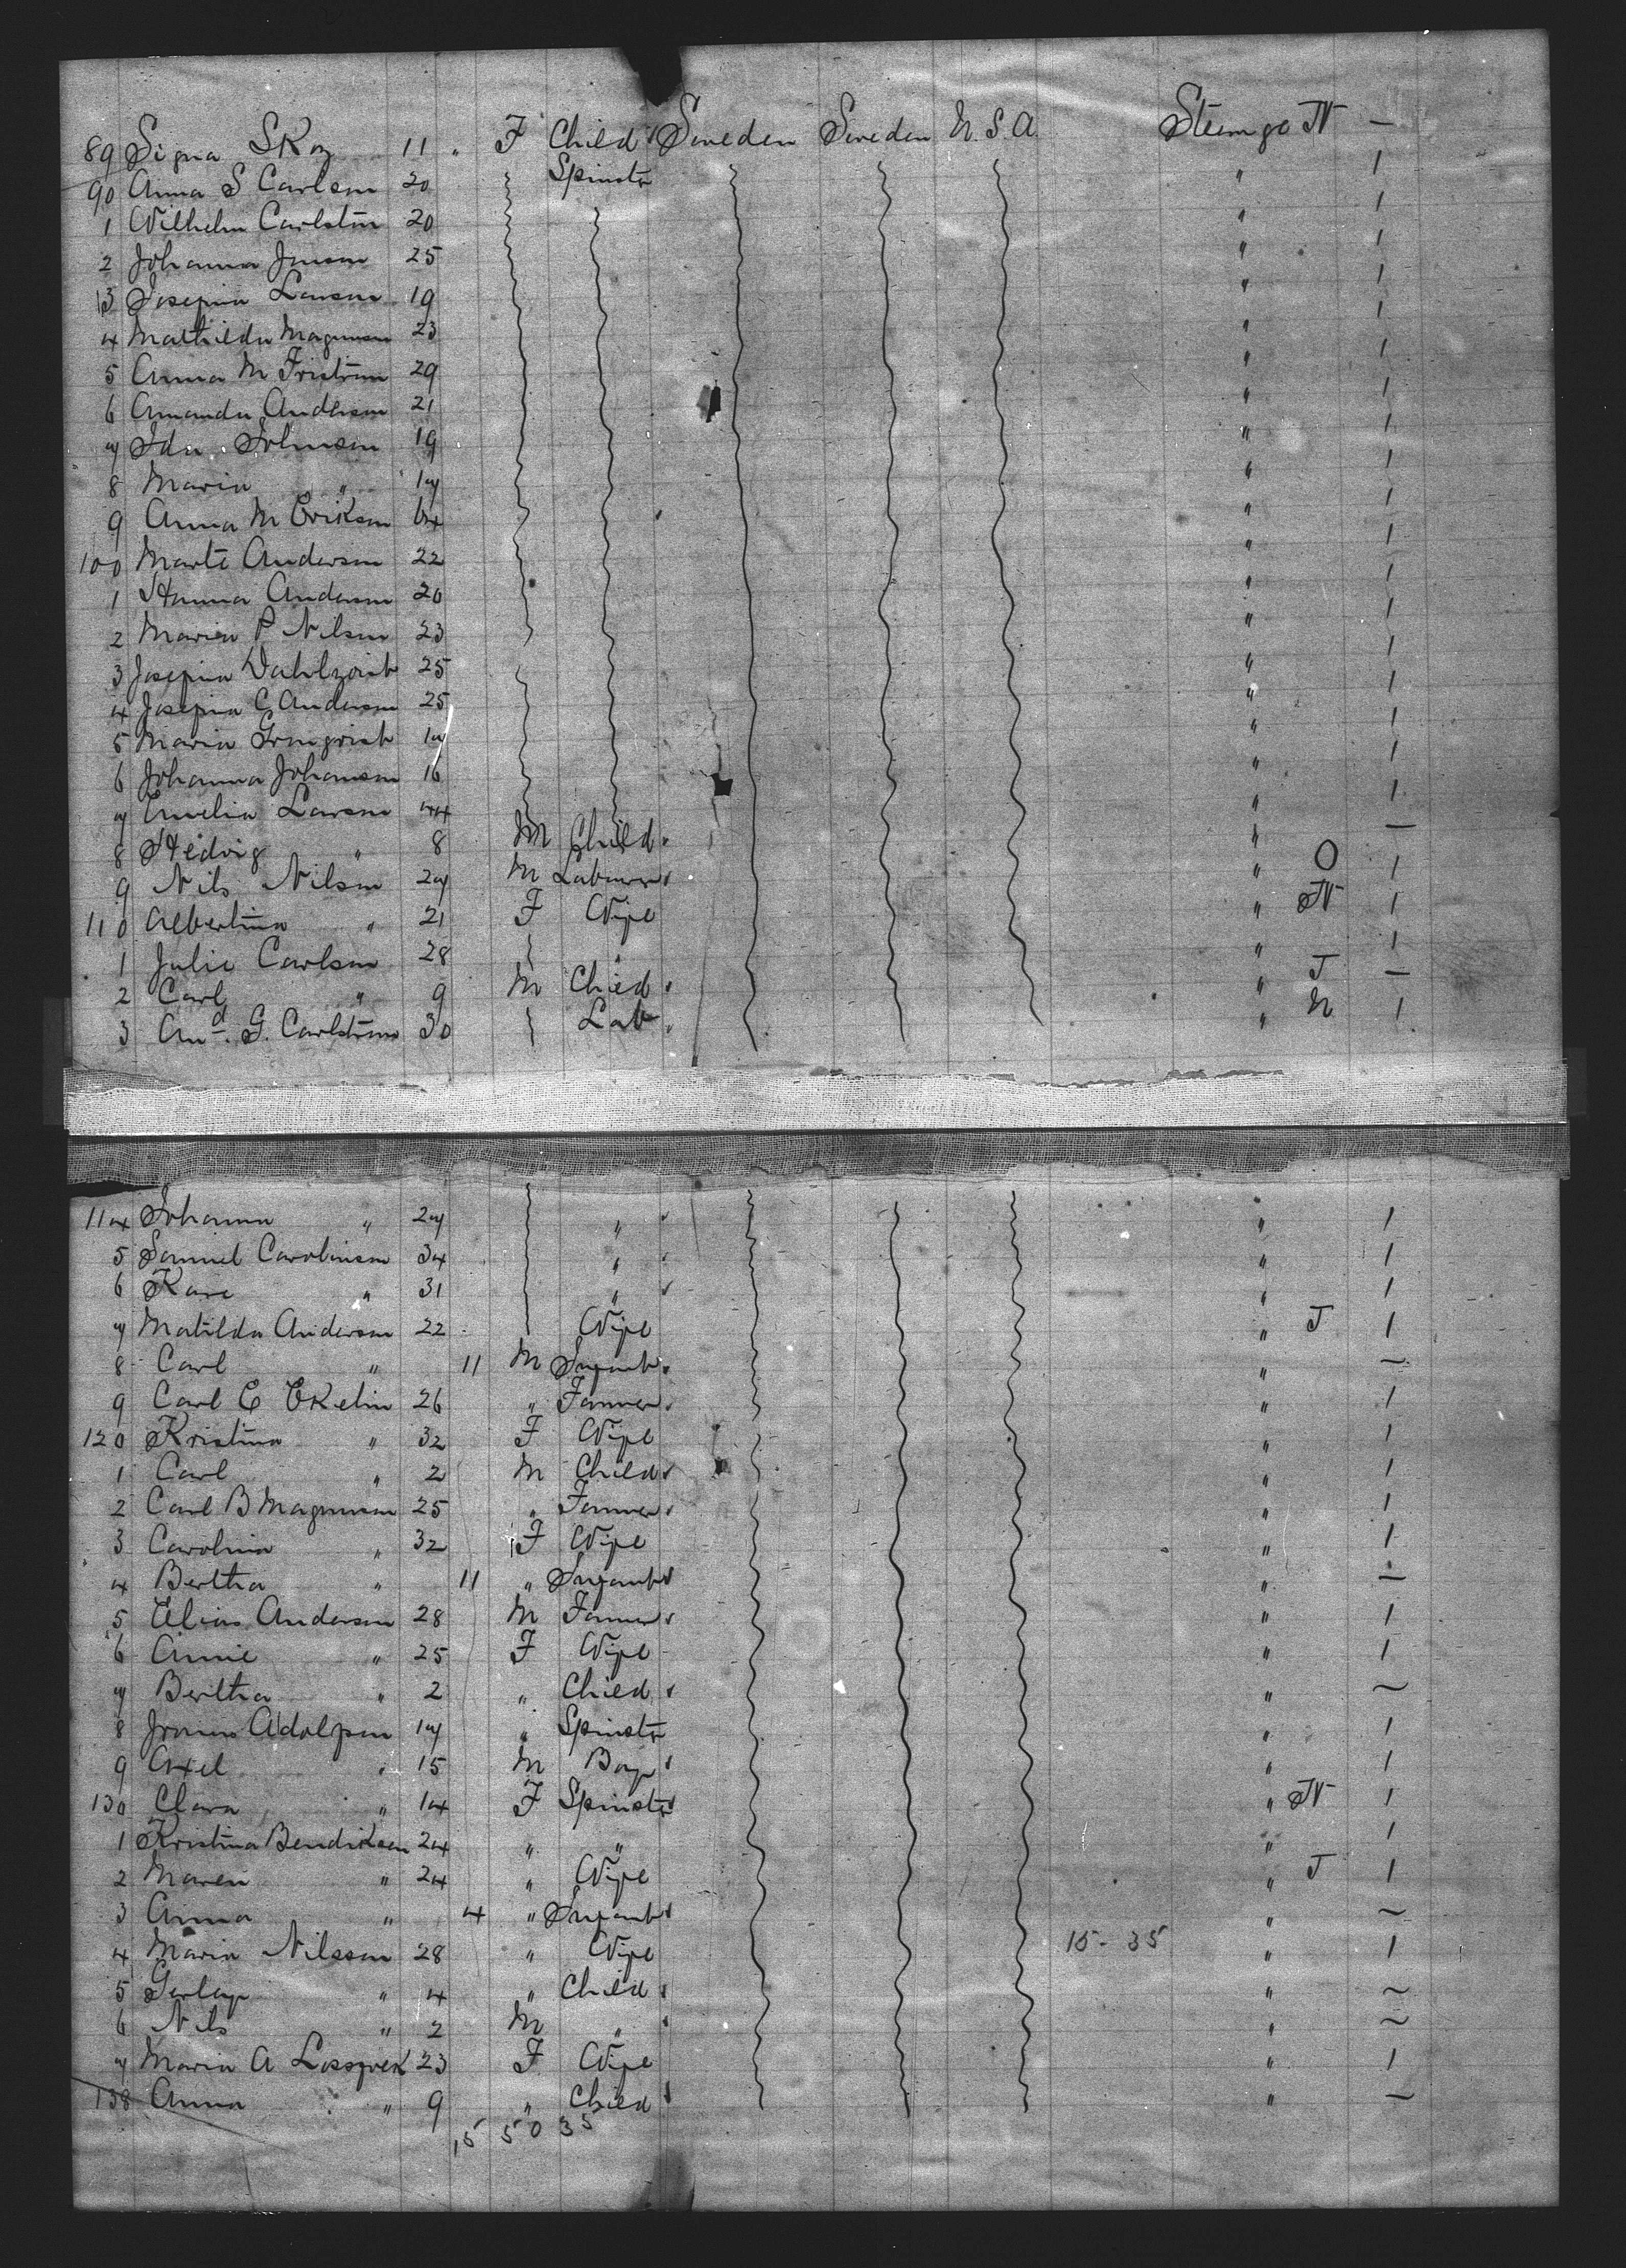 89 Signa Skog 11 " F Child Sweden Sweden U.S.A. Steerage IV —
90 Anna S Carlson 20 Spinstr " 1
1 Wilhelm Carlstrm 20 " 1
2 Johanna Jonson 25 " 1
3 Josepina Larson 19 " 1
4 Mathilda Magnuson 23 " 1
5 Anna M Fristrom 29 " 1
6 Amanda Anderson 21 " 1
7 Ida Johnson 19 " 1
8 Maria " 17 " 1
9 Anna M Erikson 64 " 1
100 Marte Anderson 22 " 1
1 Hanna Anderson 20 " 1
2 Maria P Nilson 23 " 1
3 Josepina Dahlqvist 25 " 1
4 Josepina C Anderson 25 " 1
5 Maria 17 " 1
6 Johanna Johanson 16 " 1
7 Emelia Larson 44 " 1
8 Hedvig " 8 M Child " —
9 Nils Nilson 27 M Labourer " O 1
110 Albertina " 21 F Wife " IV 1
1 Julie Carlson 28 " " 1
2 Carl " 9 M Child " J —
3 And. G. Carlstrom 30 Lab " N 1
114 Johanna " 27 " " 1
5 Samuel Carolinson 34 " " 1
6 Kare " 31 " " 1
7 Matilda Anderson 22 Wife " J 1
8 Carl " 11 M Infant " —
9 Carl E Ekelin 26 " Farmer " 1
120 Kristina " 32 F Wife " 1
1 Carl " 2 M Child " 1
2 Carl B Magnuson 25 " Farmer " 1
3 Carolina " 32 F Wife " 1
4 Bertha " 11 " Infant " —
5 Elias Anderson 28 M Farmer " 1
6 Annie " 25 F Wife " 1
7 Bertha " 2 " Child " —
8 Adolfson 17 " Spinstr " 1
9 Axel " 15 M Boy " 1
130 Clara " 14 F Spinstr " IV 1
1 Kristina Bendiksen 24 " " " 1
2 Maren " 24 " Wife " J 1
3 Anna " 4 " Infant " —
4 Maria Nilsson 28 " Wife 15-35 " 1
5 " 4 " Child " —
6 Nils " 2 M " " —
7 Maria A 23 F Wife " 1
138 Anna " 9 " Child " —
15 50 35